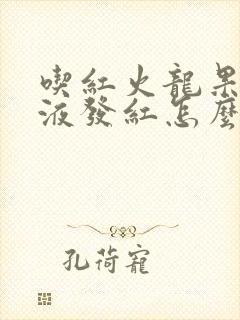 喫紅火龍果
液發紅怎麼
孔荷寵